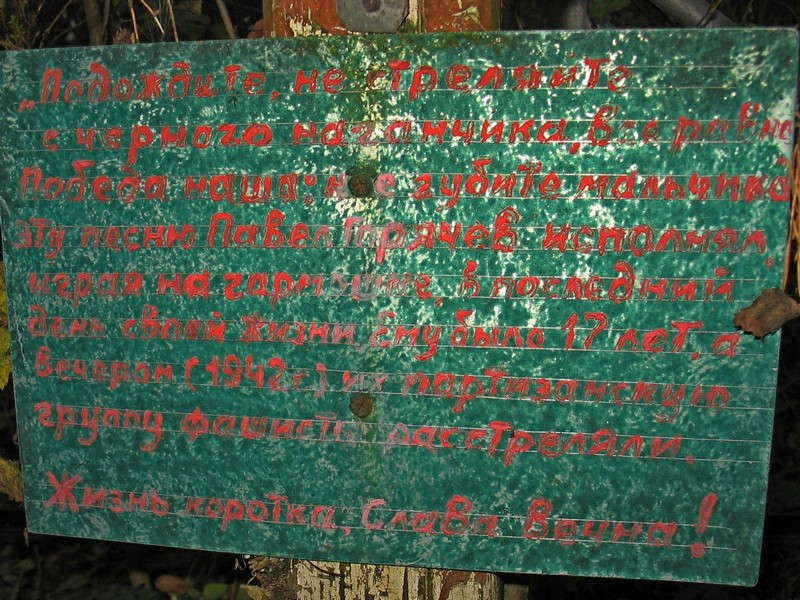 „Подождите, не стреляйте
с черного наганчика, все равно
Победа наша; не губите мальчика"
эту песню Павел Горячев исполнял,
играя на гармошке, в последний
день своей жизни. Ему было 17 лет, а
вечером (1942г.) их партизанскую
группу фашисты расстреляли.
Жизнь коротка, Слава вечна!